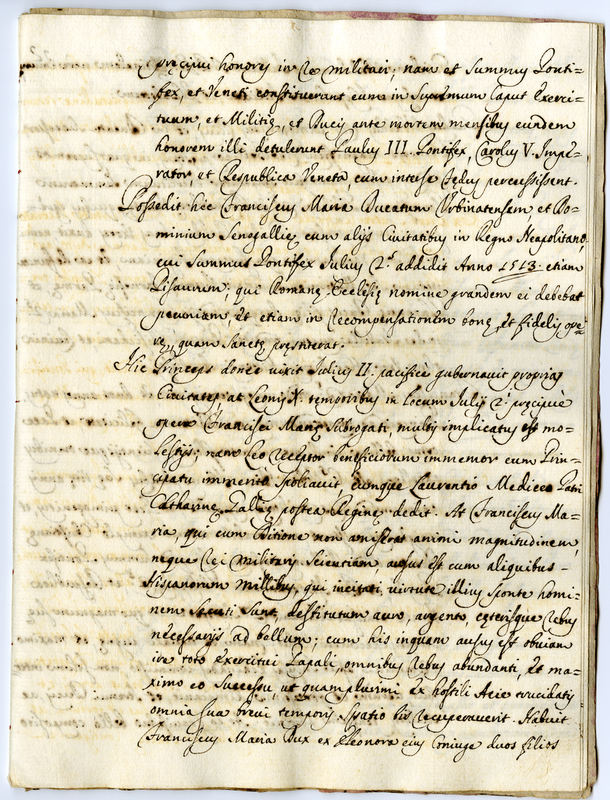 pręcipui honores in re militari; nam et Summus Ponti=
fex, et Veneti constituerunt eum in Supremum Caput Exerci=
tuum, et Militię, et Ducis ante mortem mensibus eundem
honorem illi detulerunt Paulus III. Pontifex, Carolus V. Impe=
rator, et Respublica Veneta cum inter se fędus percussissent.
Possedit hic Franciscus Maria Ducatum Urbinatensem et Do=
minium Senogallię cum alijs Civitatibus in Regno Neapolitano,
cui Summus Pontifex Julius 2.us addidit Anno 1513. etiam
Pisaurum; qui Romanę Ecclesię nomine grandem ei debebat
pecuniam, et etiam in recompensationem bonę, et fidelis ope=
rę, quam Sanctę pręstiterat.
Hic Princeps donec vixit Julius II. pacificè gubernavit proprias
Civitates, at Leonis X. temporibus in locum Julij 2.i pręcipuè
opera Francisci Marię Subrogati, multis implicatus est mo=
lestijs; nam Leo receptor beneficiorum immemor eum Prin=
cipatu immeritò spoliavit, eumque Laurentio Mediceo Patri
Catharinę Gallię postea Reginę dedit. At Franciscus Ma=
ria, qui cum Ditione non amiserat animi magnitudinem,
neque rei militaris Scientiam, ausus est cum aliquibus
Hispanorum millibus, qui incitati virtute illius sponte homi=
nem secuti sunt, destitutum auro, argento, cęterisque rebus
necessarijs ad bellum; cum his inquam ausus est obviam
ire toto exercitui Papali, omnibus rebus abundanti, et ma=
ximo eo successu, ut quamplurimi ex hostili Acie trucidatis
omnia sua brevi temporis spatio sis recuperaverit. Habuit
Franciscus Maria Dux ex Eleonora eius Coniuge duos filios